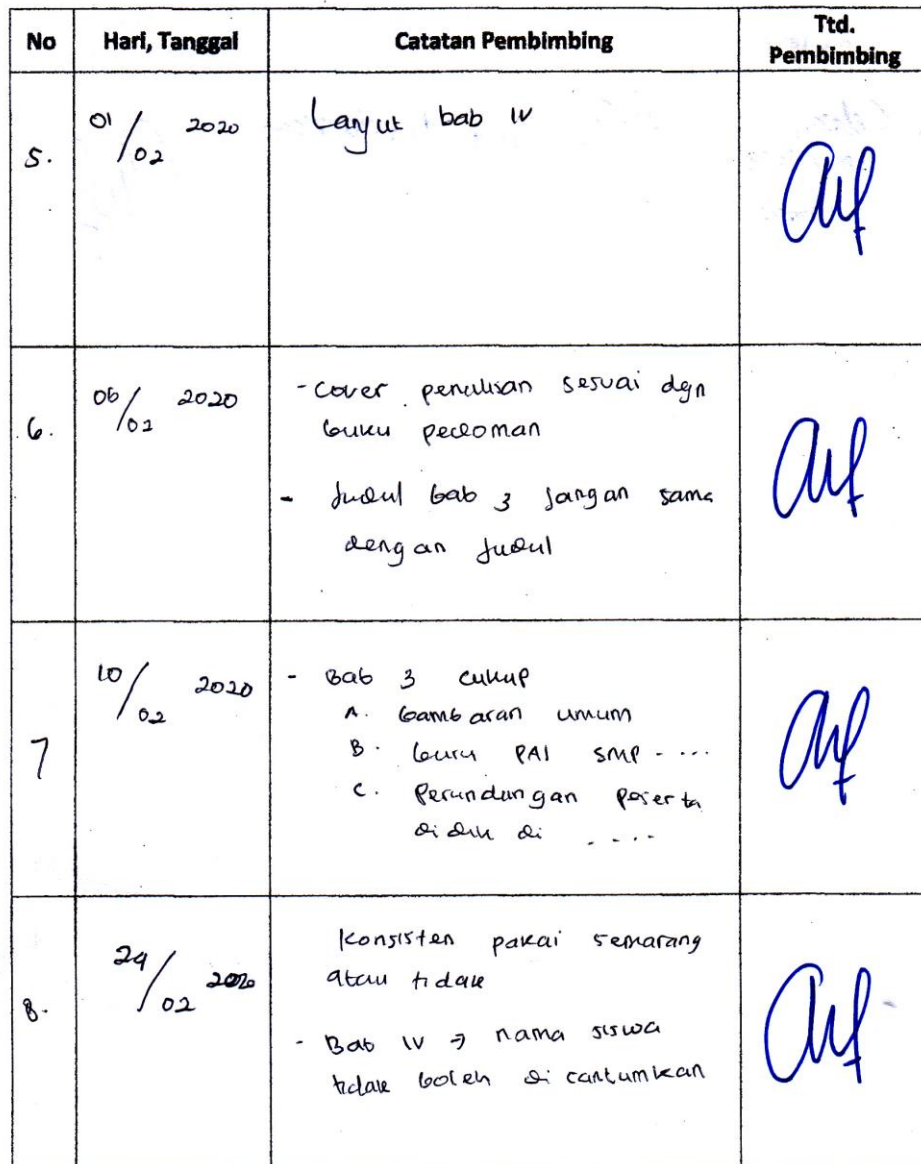 No Hari, Tanggal Catatan Pembimbing Ttd.
Pembimbing
5. 01/02 2020 Lanjut bab IV
6. 06/02 2020 - Cover penulisan sesuai dgn
buku pedoman
- Judul bab 3 jangan sama
dengan judul
7 10/02 2020 - Bab 3 cukup
A. Gambaran umum
B. Guru PAI SMP ....
C. Perundungan peserta
didik di ....
8. 24/02 2020 Konsisten pakai semarang
atau tidak
- Bab IV → nama siswa
tidak boleh di cantumkan